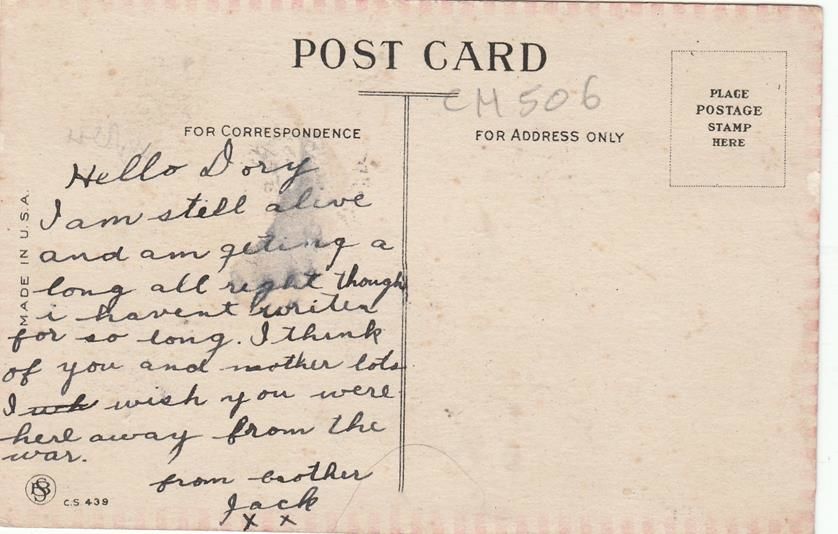 POST CARD
CM 506
PLACE
POSTAGE
STAMP
HERE
FOR CORRESPONDENCE
FOR ADDRESS ONLY
MADE IN U.S.A.
Hello Dory
I am still alive
and am geting a
long all right though
i havent writen
for so long. I think
of you and mother lots
I wish you were
here away from the
war.
from brother
Jack
x x
C.S. 439